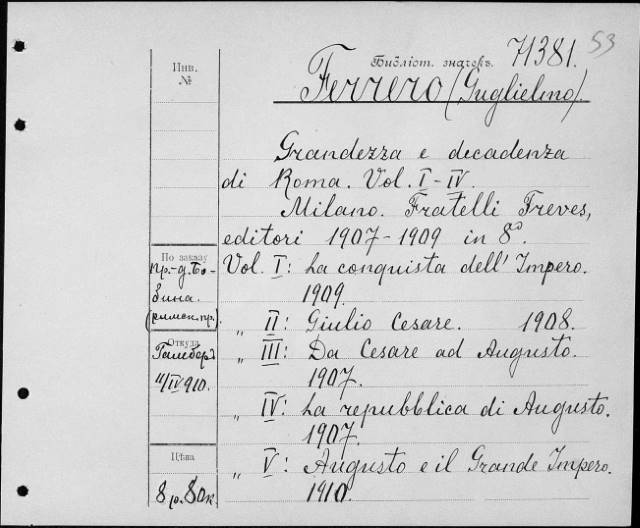 53
Библіот. значекъ. 71381.
Инв.
№
Ferrero (Guglielmo).
Grandezza e decadenza
di Roma. Vol. I-IV.
Milano. Fratelli Treves,
editori 1907-1909 in 8º.
По заказу
пр.-д. Бо-
зина.
(римск. пр.)
Vol. I: La conquista dell' Impero.
1909.
„ II: Giulio Cesare. 1908.
Откуда
11/IV 910.
„ III: Da Cesare ad Augusto.
1907.
„ IV: La repubblica di Augusto.
1907.
Цѣна
8 р. 80 к.
„ V: Augusto e il Grande Impero.
1910.